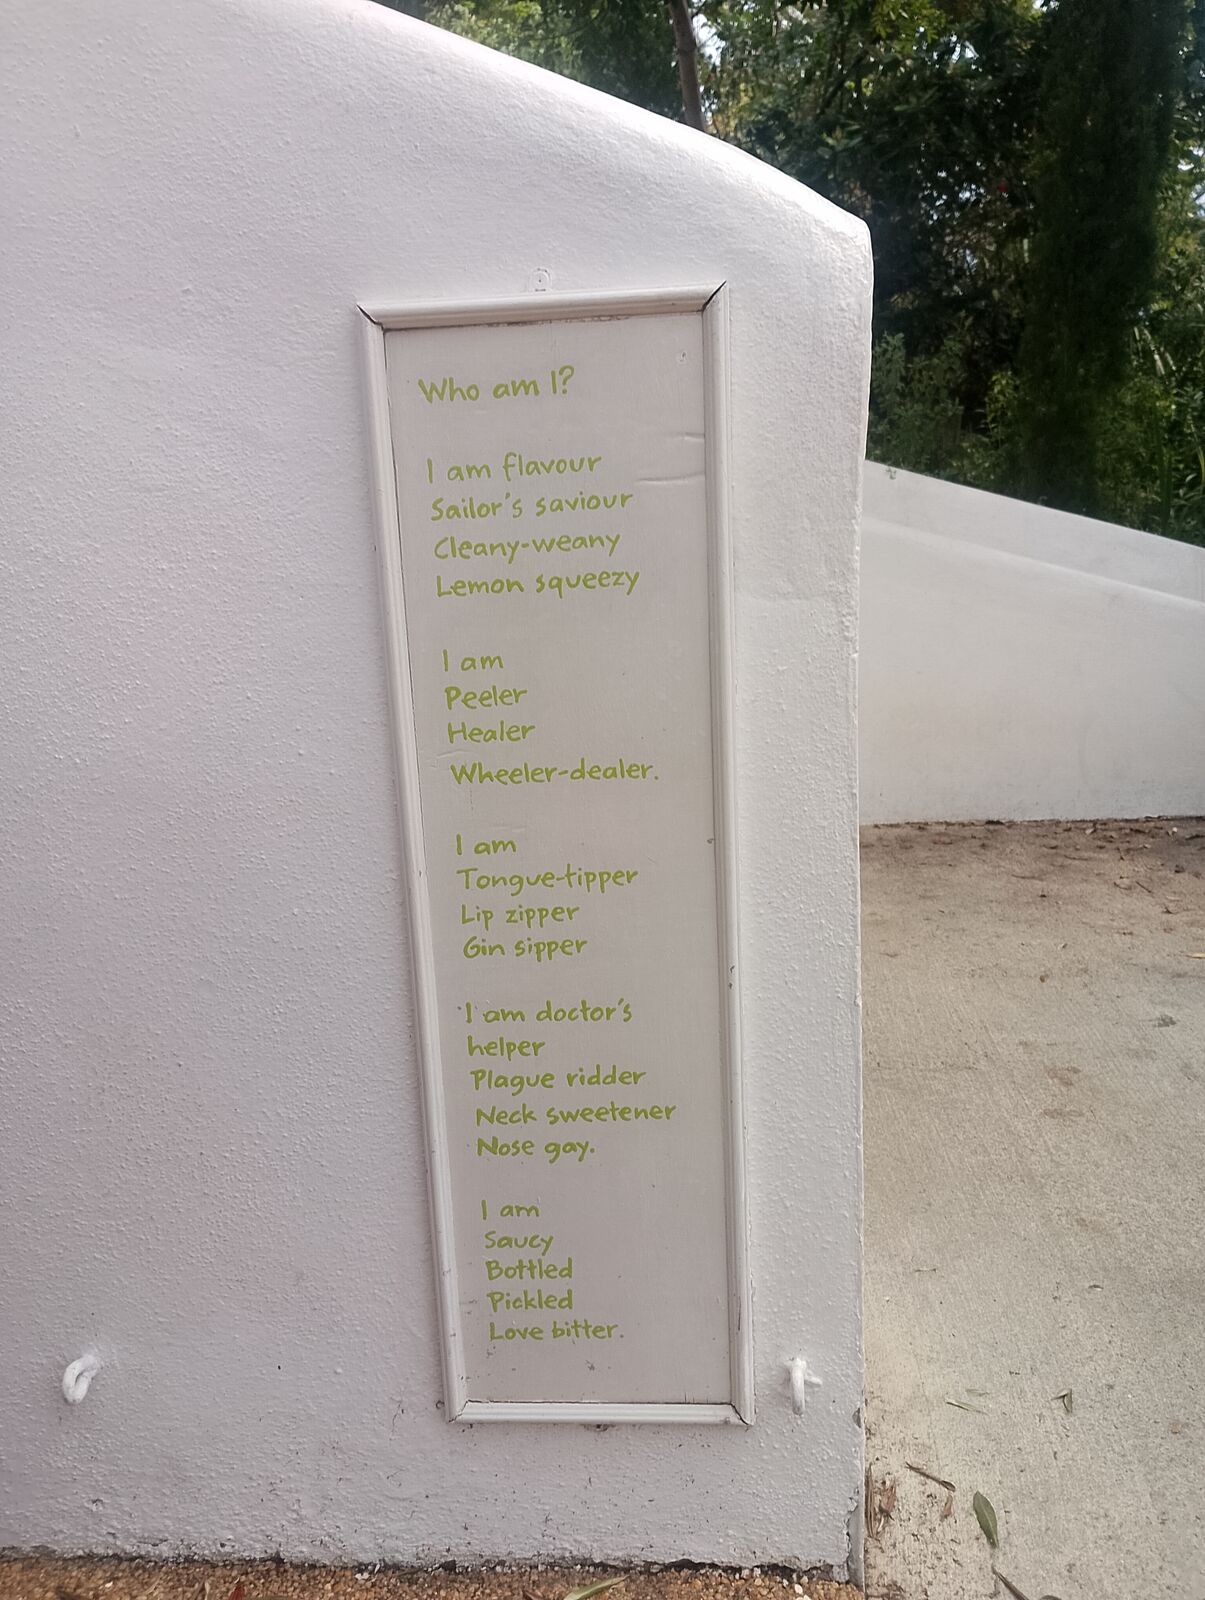 Who am I?
I am flavour
Sailor's saviour
Cleany-weany
Lemon squeezy
I am
Peeler
Healer
Wheeler-dealer.
I am
Tongue-tipper
Lip zipper
Gin sipper
I am doctor's
helper
Plague ridder
Neck sweetener
Nose gay.
I am
Saucy
Bottled
Pickled
Love bitter.